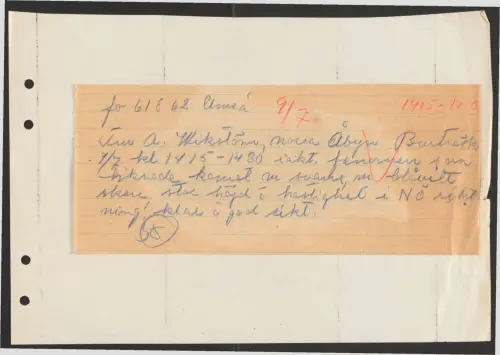 fo 61862 Umeå 9/7 1415-1430
A. Wikström, norra Åbyn Burträsk
9/7 kl 1415-1430 iakt. fenomen som
liknade komet m svans, m blåvitt
sken, stor höjd o hastighet i NÖ rikt
ning, klar o god sikt.